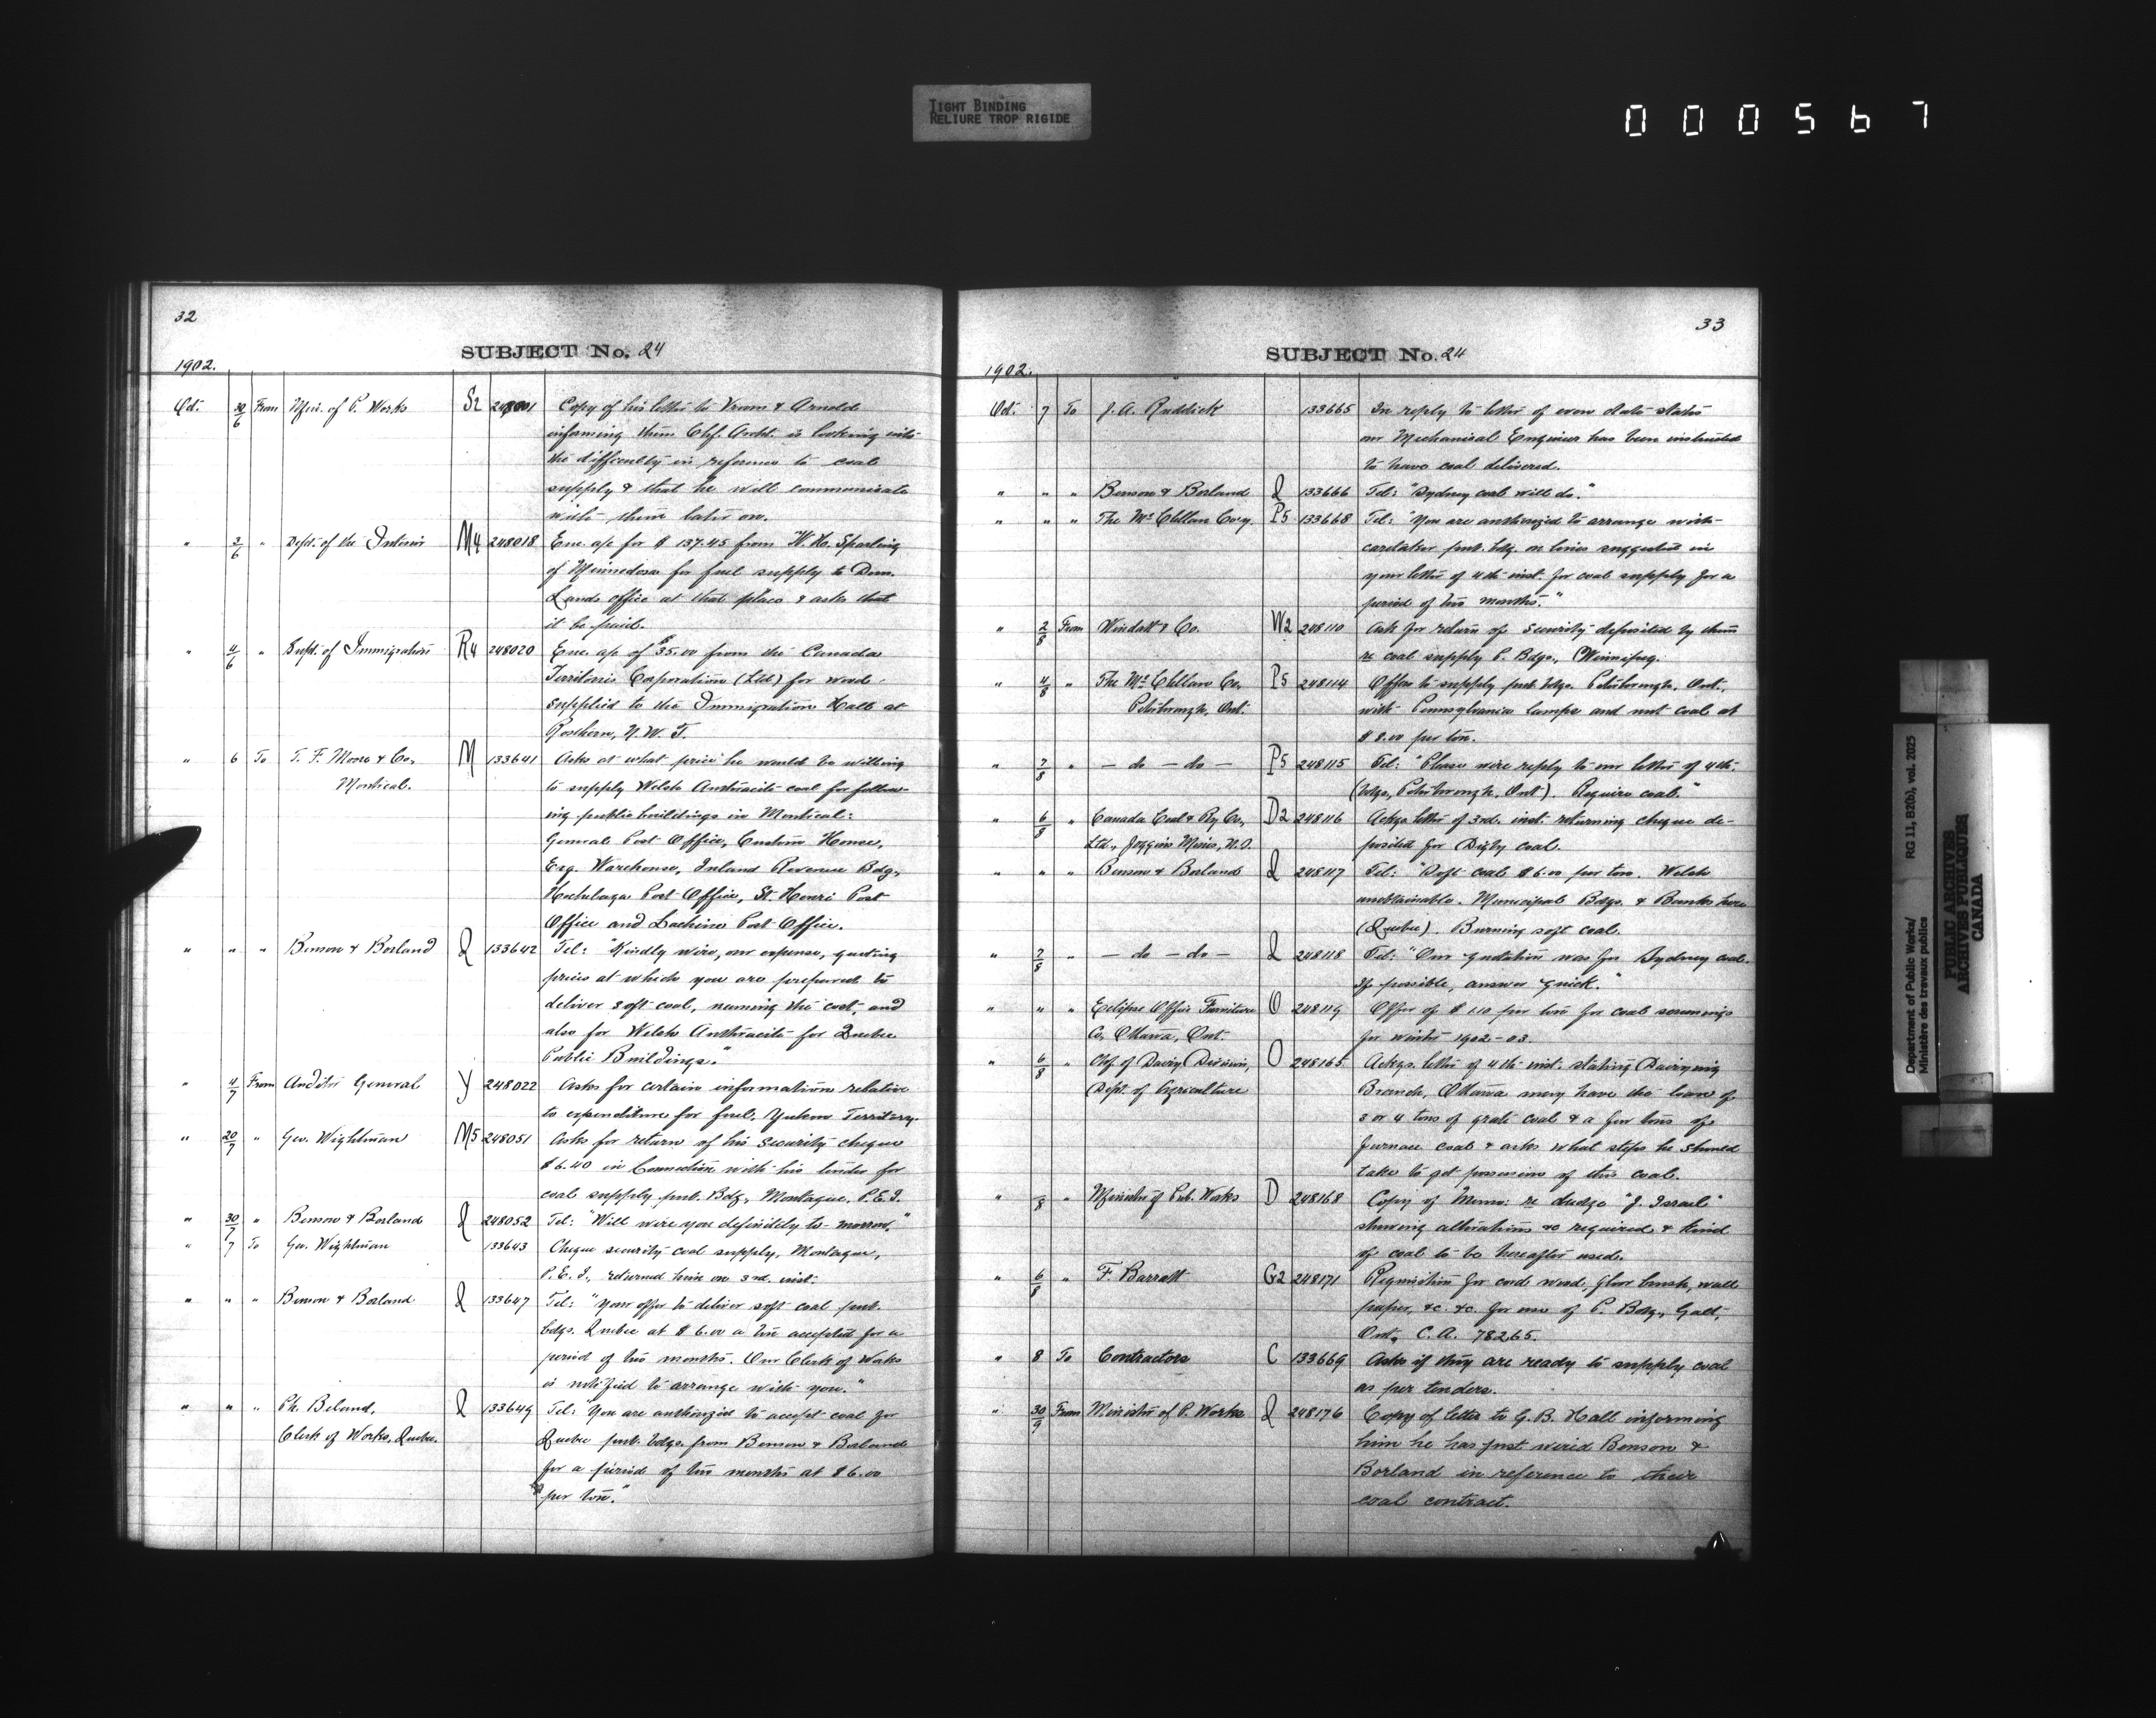 TIGHT BINDING
RELIURE TROP RIGIDE
000567
32
SUBJECT No. 24
1902.
Oct. 30/6 From Min. of P. Works S2 248001 Copy of his letter to Vrom & Arnold
informing them Chf. Archt. is looking into
the difficulty in reference to coal
supply & that he will communicate
with them later on.
" 3/6 " Dept. of the Interior M4 248018 Enc. a/c for $137.45 from W. H. Sparling
of Minnedosa for fuel supply to Dom.
Lands office at that place & asks that
it be paid.
" 4/6 " Supt. of Immigration R4 248020 Enc. a/c of $35.00 from the Canada
Territories Corporation (Ltd) for wood
supplied to the Immigration Hall at
Rosthern, N.W.T.
" 6 To T. F. Moore & Co., M 133641 Asks at what price he would be willing
Montreal. to supply Welsh Anthracite coal for follow-
ing public buildings in Montreal:
General Post Office, Custom House,
Exg. Warehouse, Inland Revenue Bdg.,
Hochelaga Post Office, St. Henri Post
Office and Lachine Post Office.
" " " Benson & Borland Q 133642 Tel: "Kindly wire, our expense, quoting
prices at which you are prepared to
deliver soft coal, naming the cost, and
also for Welsh Anthracite for Quebec
Public Buildings."
" 4/7 From Auditor General Y 248022 Asks for certain information relative
to expenditure for fuel, Yukon Territory.
" 20/7 " Geo. Wightman M5 248051 Asks for return of his security cheque
$6.40 in connection with his tender for
coal supply pub. Bdg., Montague, P.E.I.
" 30/7 " Benson & Borland Q 248052 Tel: "Will wire you definitely to-morrow."
" 7 To Geo. Wightman 133643 Cheque security coal supply, Montague,
P.E.I., returned him on 3rd. inst.
" " " Benson & Borland Q 133647 Tel: "Your offer to deliver soft coal pub.
bdgs. Quebec at $6.00 a ton accepted for a
period of two months. Our Clerk of Works
is notified to arrange with you."
" " " Ph. Beland, Q 133649 Tel: "You are authorized to accept coal for
Clerk of Works, Quebec. Quebec pub. bdgs. from Benson & Borland
for a period of two months at $6.00
per ton."
33
SUBJECT No. 24
1902.
Oct. 7 To J. A. Ruddick 133665 In reply to letter of even date states
our Mechanical Engineer has been instructed
to have coal delivered.
" " " Benson & Borland Q 133666 Tel: "Sydney coal will do."
" " " The McClellan Coy. P5 133668 Tel: "You are authorized to arrange with
caretaker pub. bdg. on lines suggested in
your letter of 4th inst. for coal supply for a
period of two months."
" 2/8 From Windatt & Co. W2 248110 Ask for return of security deposited by them
re coal supply P. Bdgs., Winnipeg.
" 4/8 " The McClellan Co., P5 248114 Offers to supply pub. bdgs. Peterborough, Ont.,
Peterborough, Ont. with Pennsylvania lumps and nut coal at
$8.00 per ton.
" 7/8 " — do — do — P5 248115 Tel: "Please wire reply to our letter of 4th.
(bdgs., Peterborough, Ont). Require coal."
" 6/8 " Canada Coal & Ry Co., D2 248116 Ackgs letter of 3rd. inst. returning cheque de-
Ltd., Joggins Mines, N.S. posited for Digby coal.
" " " Benson & Borland Q 248117 Tel: "Soft coal $6.00 per ton. Welsh
unobtainable. Municipal Bdgs. & Banks here
(Quebec). Burning soft coal.
" 7/8 " — do — do — Q 248118 Tel: "Our quotation was for Sydney coal.
If possible, answer quick."
" " " Eclipse Office Furniture O 248119 Offer of $1.10 per ton for coal screenings
Co., Ottawa, Ont. for winter 1902-03.
" 6/8 " Chf. of Dairy Division, O 248165 Ackgs. letter of 4th inst. stating Dairying
Dept. of Agriculture Branch, Ottawa may have the loan of
3 or 4 tons of grate coal & a few tons of
furnace coal & asks what steps he should
take to get possession of this coal.
" /8 " Minister of Pub. Works D 248168 Copy of Memo: re dredge "J. Israel"
showing alterations &c required & kind
of coal to be hereafter used.
" 6/8 " F. Barrett G2 248171 Requisition for cord wood, floor brush, wall
paper, &c. &c. for use of P. Bdg., Galt,
Ont., C.A. 78265.
" 8 To Contractors C 133669 Asks if they are ready to supply coal
as per tenders.
" 30/9 From Minister of P. Works Q 248176 Copy of letter to G. B. Hall informing
him he has just wired Benson &
Borland in reference to their
coal contract.
Department of Public Works/
Ministère des travaux publics
RG 11, B2(b), vol. 2025
PUBLIC ARCHIVES
ARCHIVES PUBLIQUES
CANADA